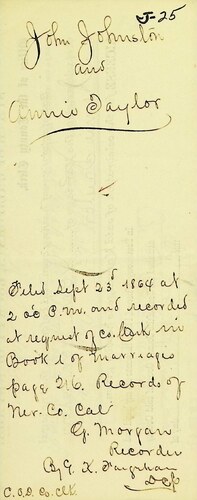 J-25
John Johnston
and
Annie Taylor
Filed Sept 23d 1864 at
2 oc P.M. and recorded
at request of Co. Clerk in
Book 1 of Marriages
page 216. Records of
Ner. Co. Cal
G. Morgan
Recorder
By G. K. Farnham
C.O.D. Co. Clk